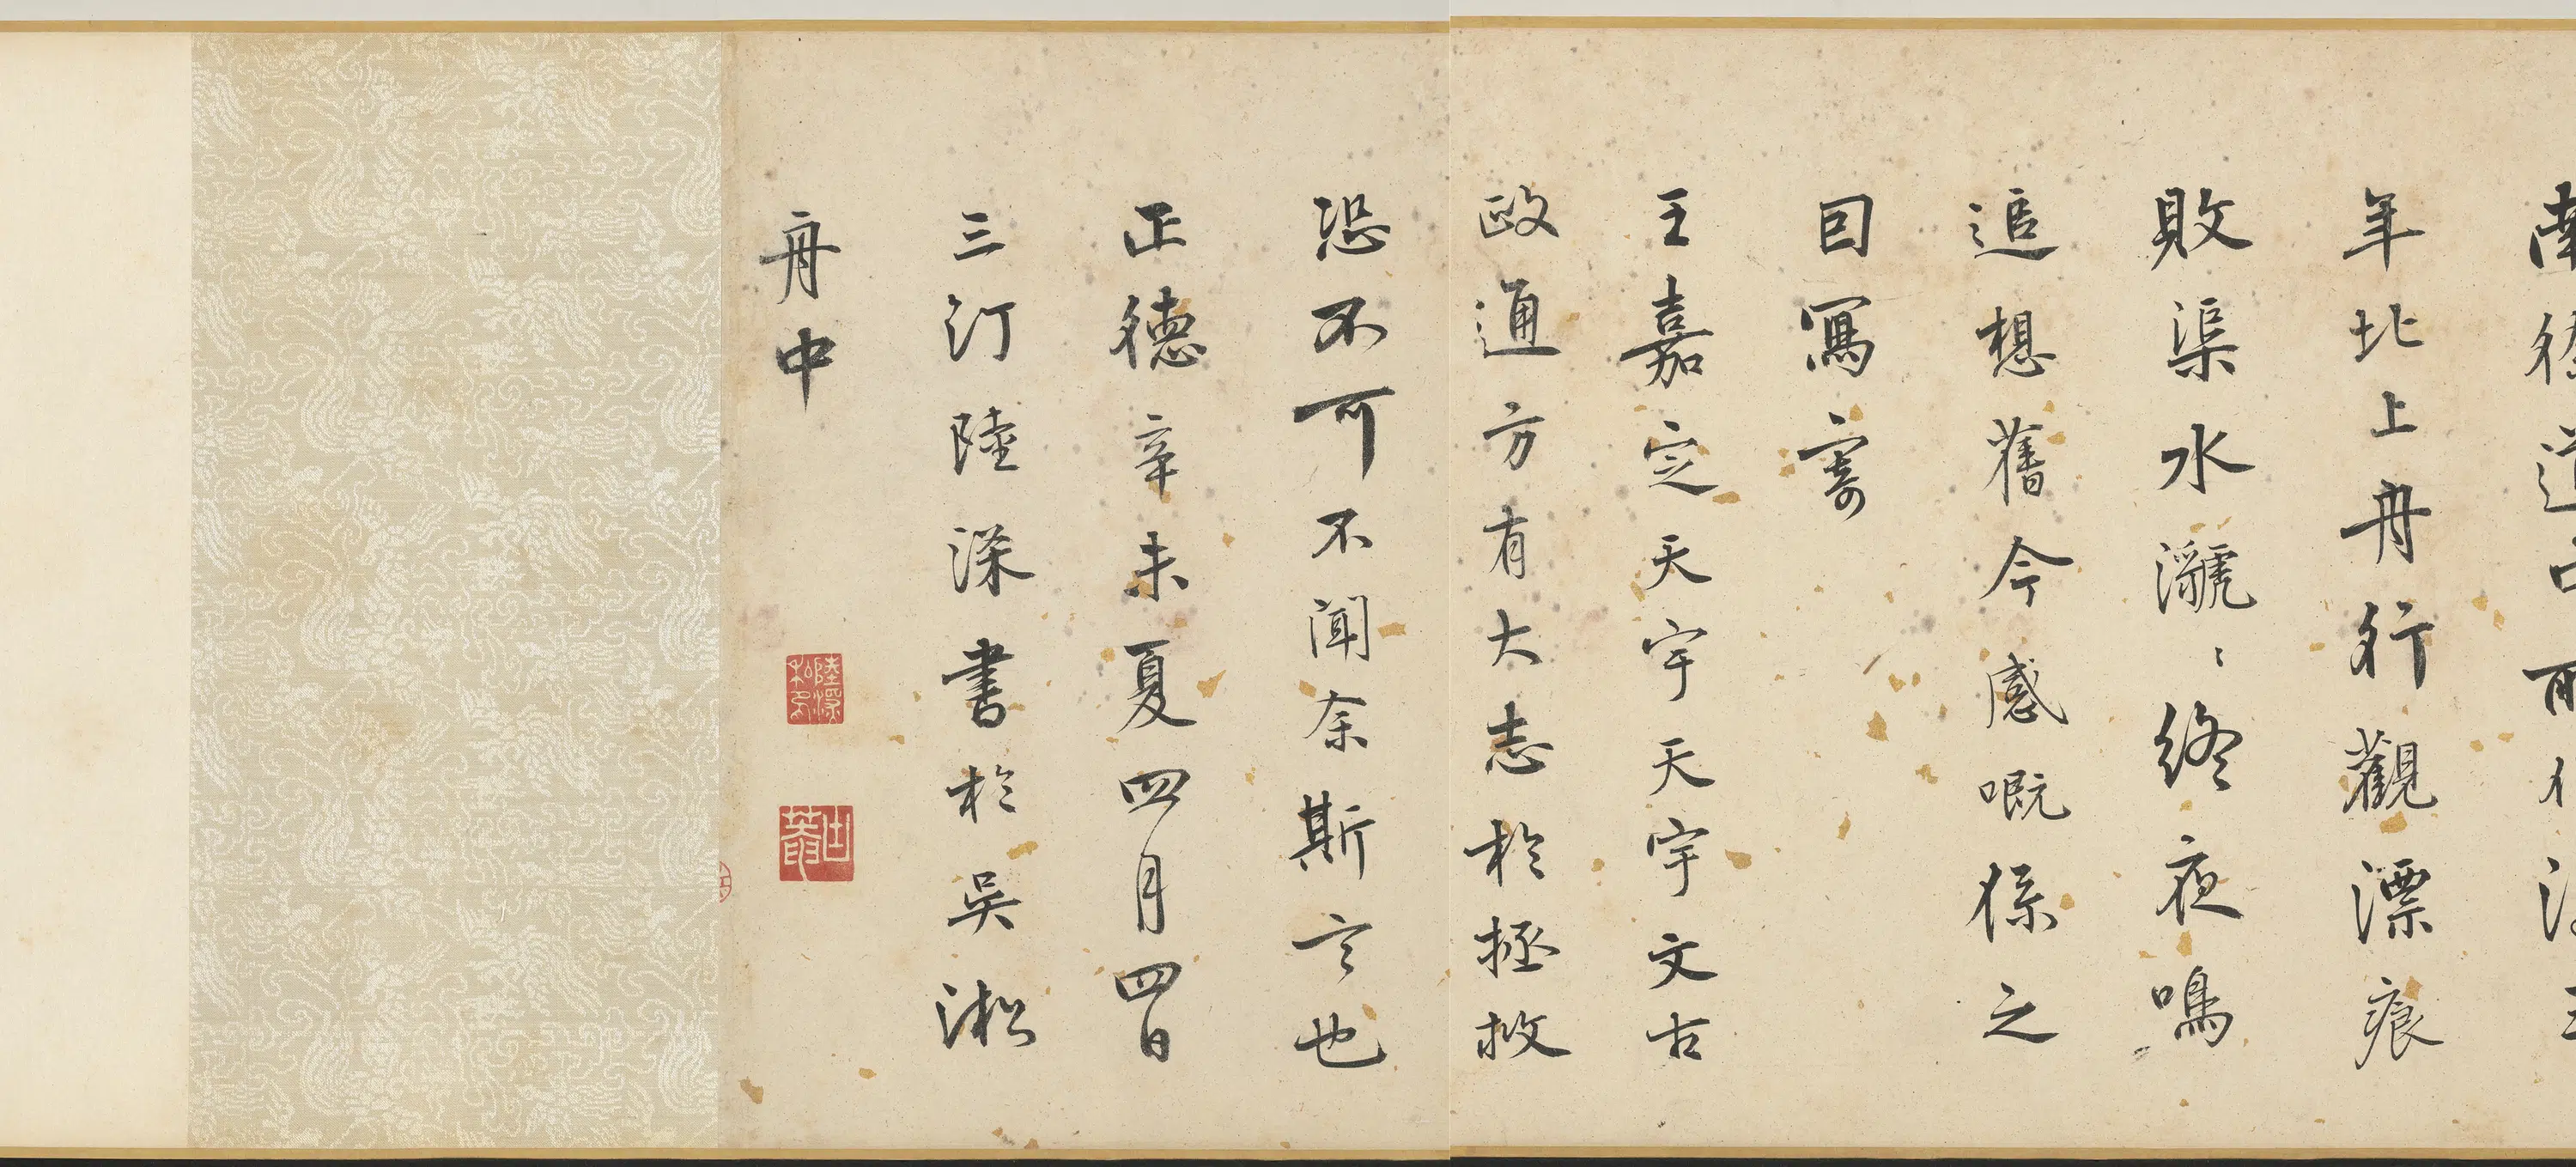 年北上舟行觀漂痕
敗渠水濺〻終夜鳴
追想舊今感嘅係之
囙寫寄
王嘉定天宇天宇文古
政通方有大志於拯救
恐不可不聞余斯言也
正德辛未夏四月四日
三汀陸深書於吳淞
舟中